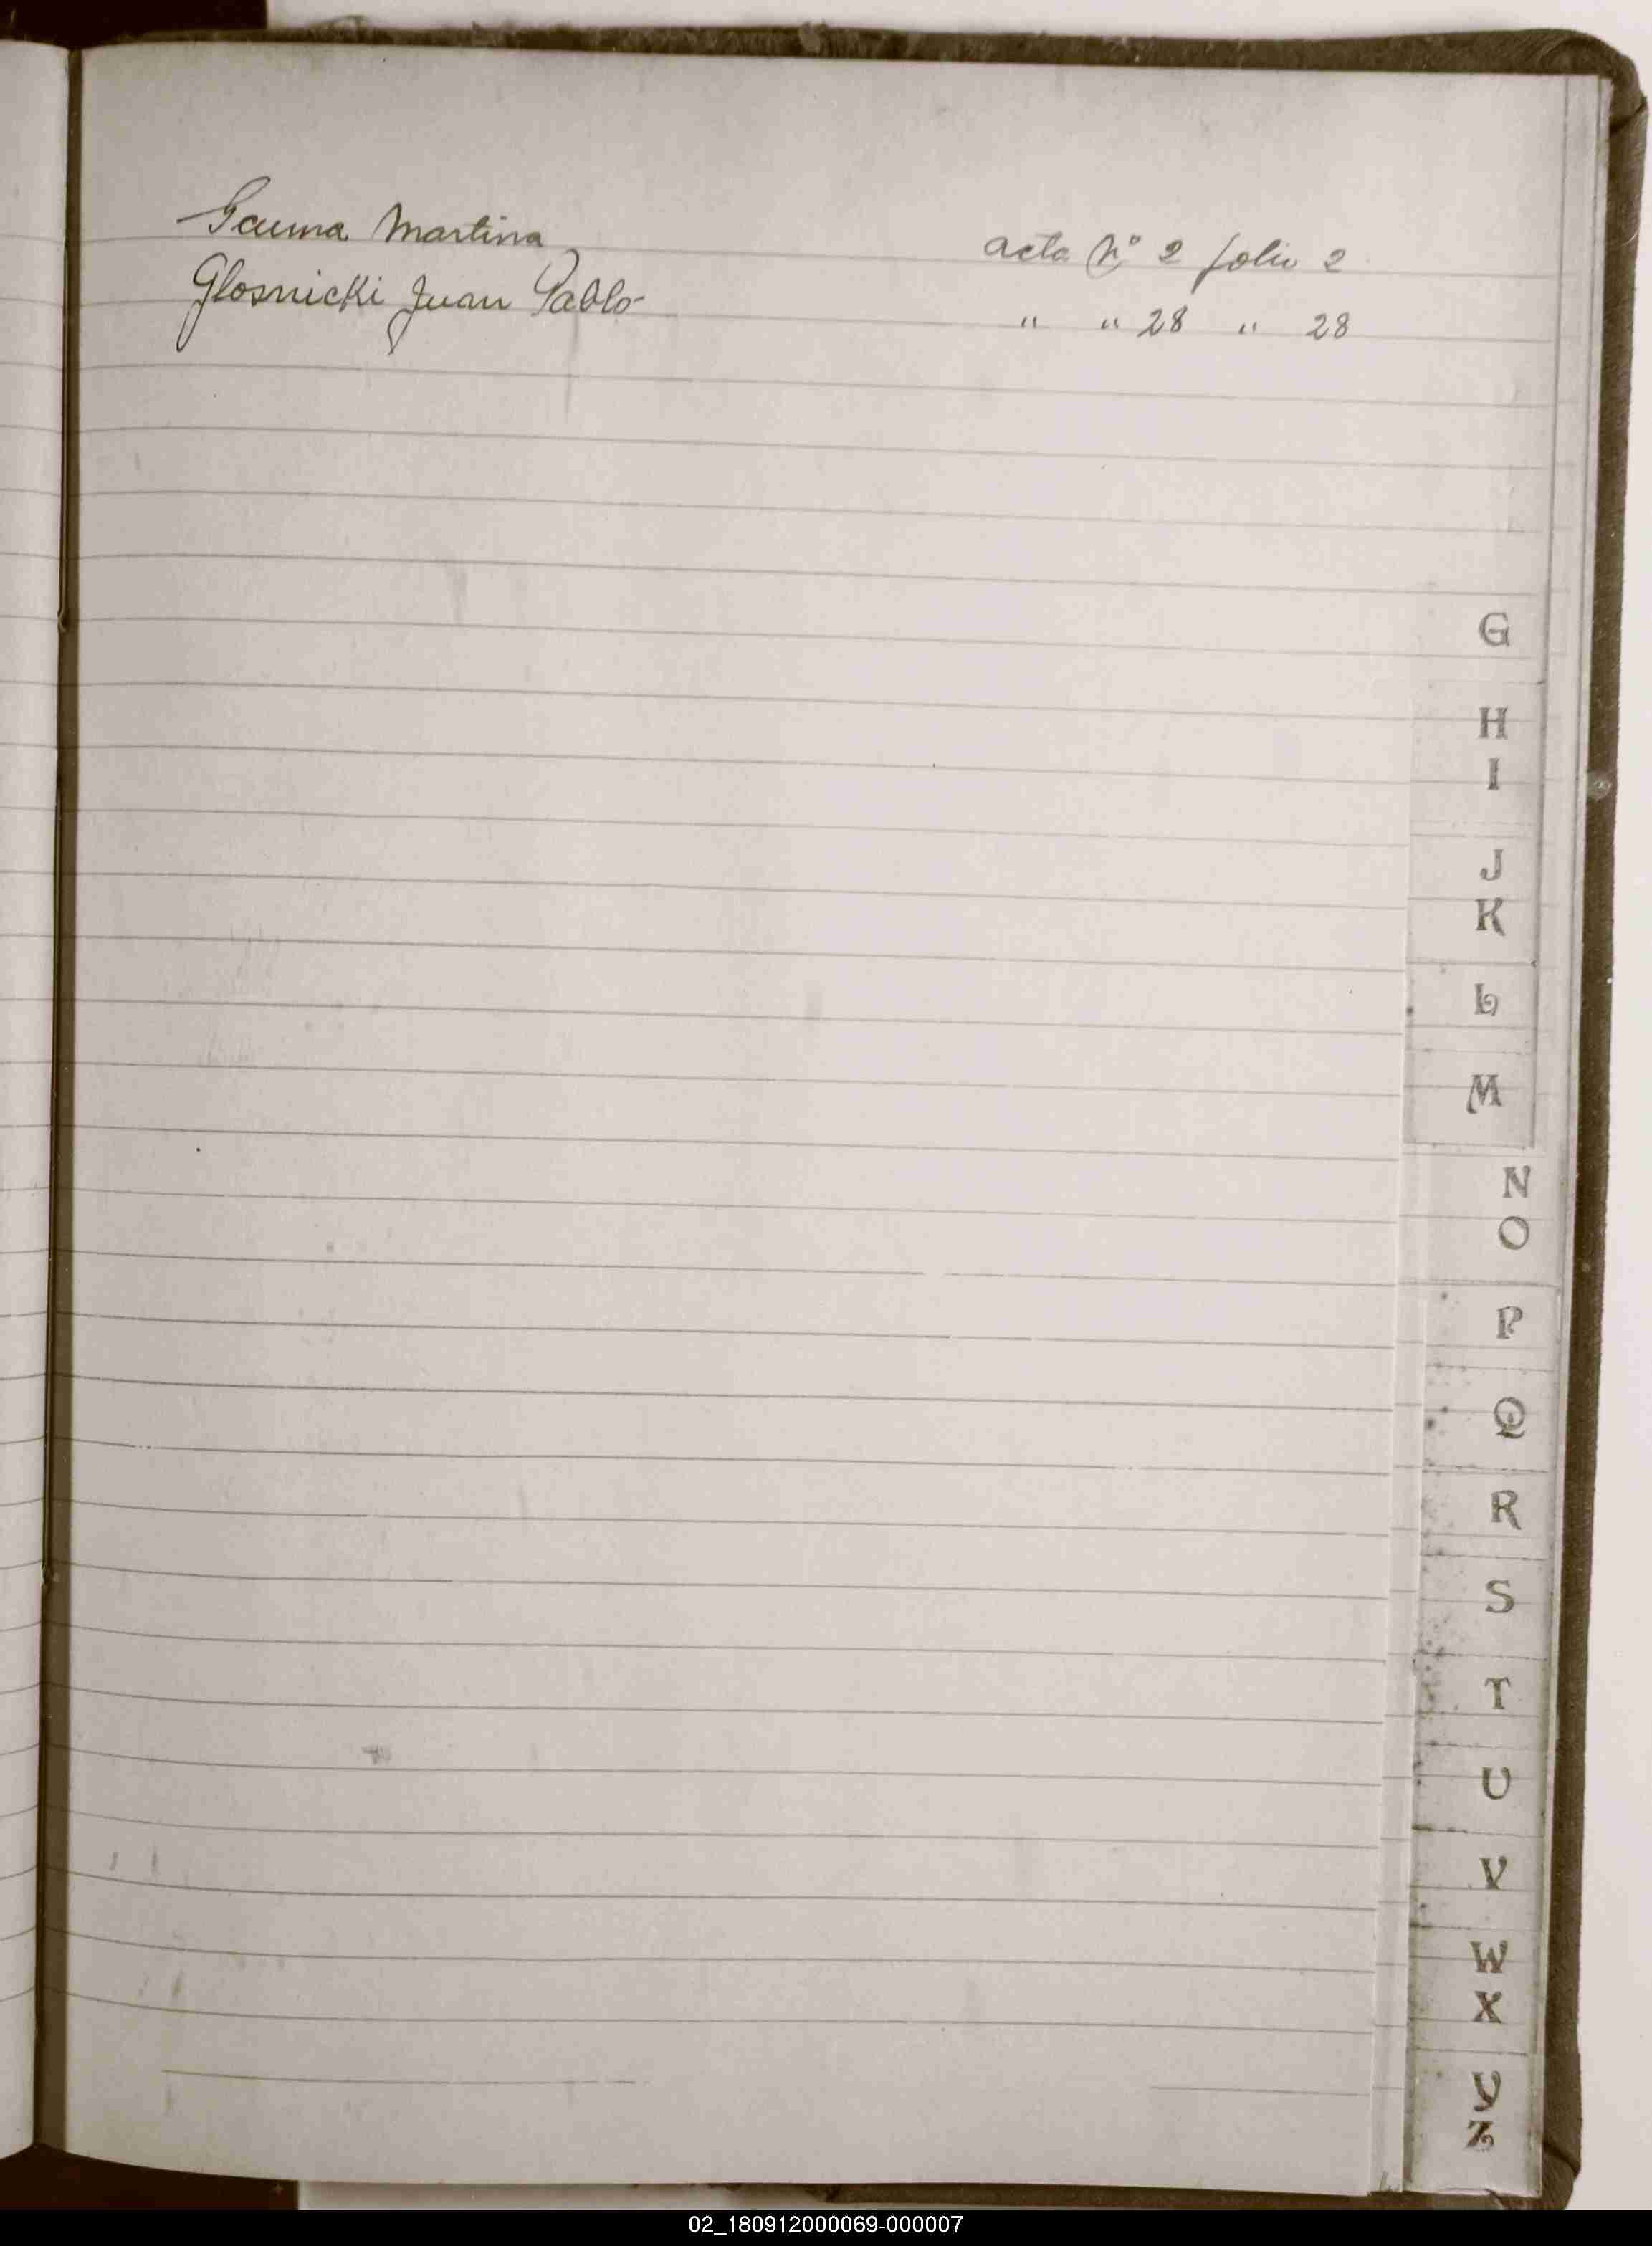 Gauna Martina acta Nº 2 folio 2
Glosnicki Juan Pablo " " 28 " 28
G
H
I
J
K
L
M
N
O
P
Q
R
S
T
U
V
W
X
Y
Z
02_180912000069-000007